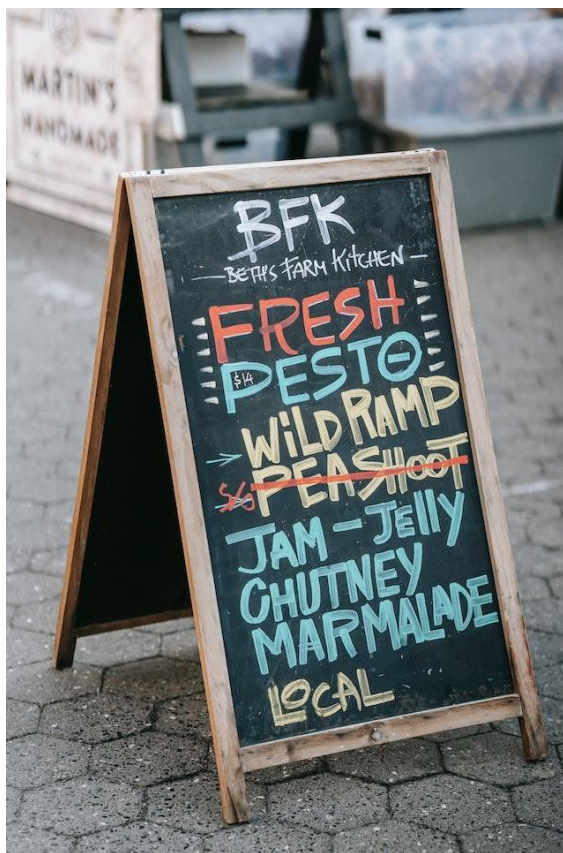 MARTIN'S
HANDMADE
BFK
BETH'S FARM KITCHEN
FRESH
PESTO
$14
WILD RAMP
S/O PEASHOOT
JAM - JELLY
CHUTNEY
MARMALADE
LOCAL